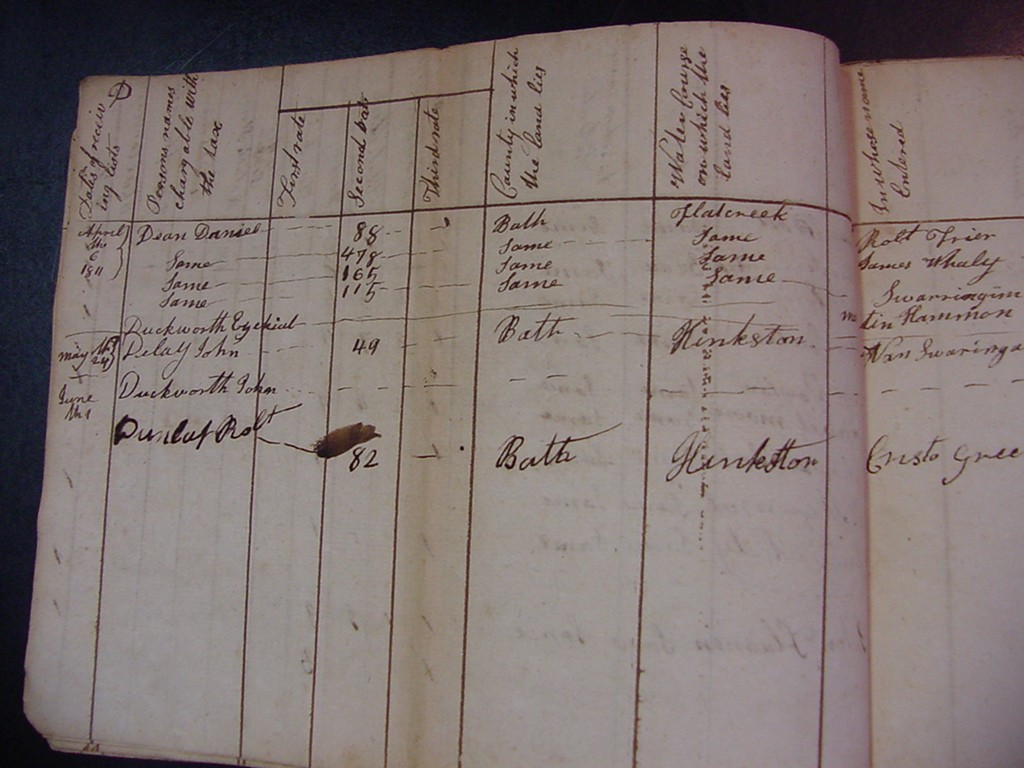 D
Dates of receiv
ing lists
Persons names
chargable with
the tax
First rate
Second rate
Third rate
County in which
the land lies
Water Course
on which the
land lies
In whose name
Entered
April the 6 1811 Dean Daniel 88 Bath Flatcreek Robt Trier
Same 478 Same Same James Whaly
Same 165 Same Same Swarringim
Same 115 Same Same
Duckworth Ezekiel tin Hammon
May the 24 Delay John 49 Bath Hinkston Van Swaringa
June the 1 Duckworth John
Dunlap Robt 82 Bath Hinkston Cristo Gree